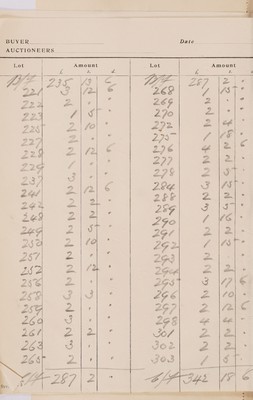 BUYER Date
AUCTIONEERS
Lot Amount Lot Amount
£ s. d. £ s. d.
B/f 235 13 6 B/f 287 2 "
221 3 12 6 268 1 15 "
222 2 " " 269 2 " "
223 1 5 " 270 2 " "
225 2 10 " 272 2 4 "
227 2 " " 275 1 18 "
228 2 12 6 276 4 2 6
229 1 " " 277 2 2 "
237 3 " " 278 2 5 "
241 2 12 6 284 3 15 "
242 2 2 " 288 2 2 "
248 2 2 " 289 3 5 "
249 2 5 " 290 1 16 "
250 2 10 " 291 2 2 "
251 2 " " 292 1 15 "
252 2 12 " 293 2 " "
256 2 " " 294 2 2 "
258 3 3 " 295 3 17 6
259 2 " " 296 2 10 "
260 3 " " 297 2 12 6
261 2 2 " 298 4 4 "
263 3 " " 301 2 2 "
265 2 " " 302 2 2 "
303 1 5 "
c/f 287 2 " c/f 342 18 6